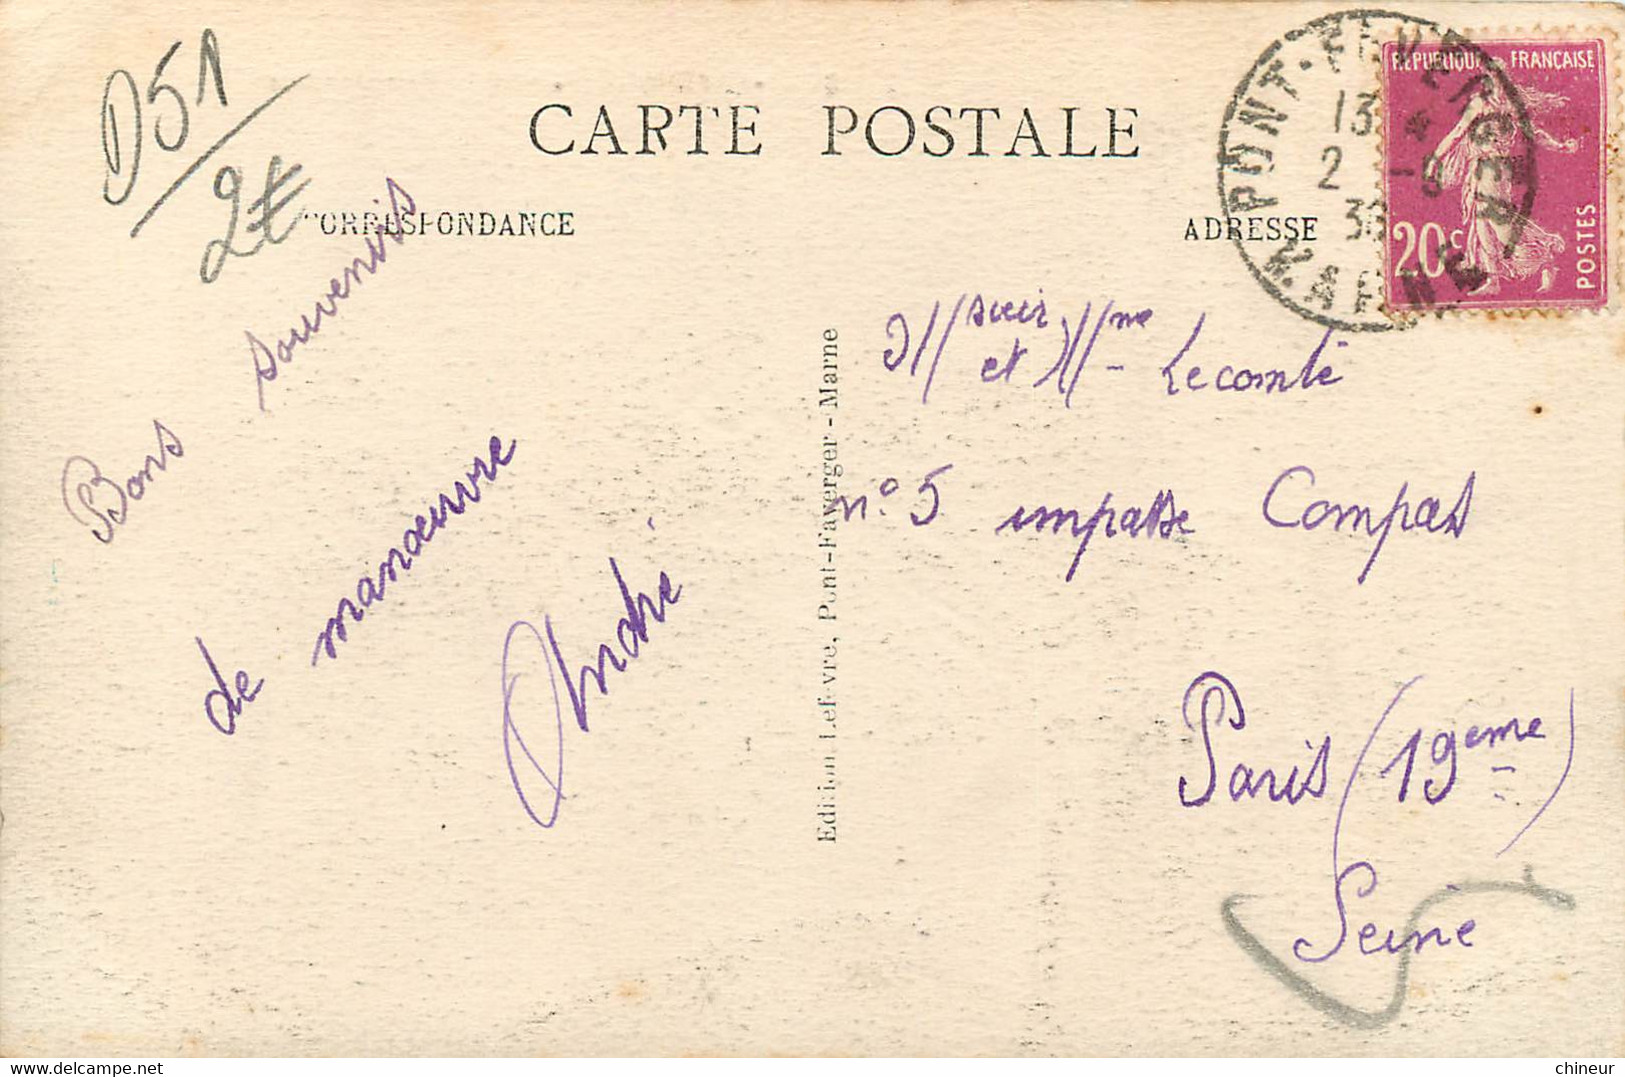 D51
2€
CARTE POSTALE
CORRESPONDANCE
ADRESSE
PONT-FAVERGER
13
2 -9
36
MARNE
REPUBLIQUE FRANÇAISE
20c
POSTES
Bons souvenirs
de manœuvre
André
Edition Lefèvre, Pont-Faverger - Marne
et Mme Lecomte
n° 5 impasse Compas
Paris (19eme)
Seine
chineur